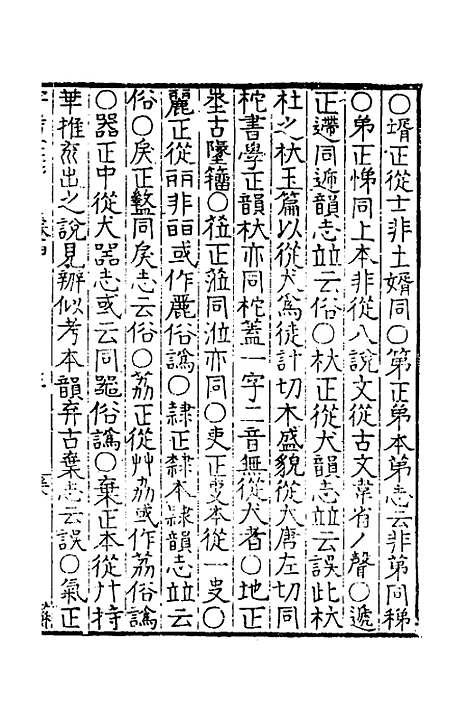 ○壻正從士非土婿同○第正弟本第志云非第同稊
○弟正悌同上本非從八說文從古文韋省丿聲○遞
正遰同遞韻志並云俗○杕正從犬韻志並云誤此杕
杜之杕玉篇以從犬爲徒計切木盛貌從犬唐左切同
柁書學正韻杕亦同柁蓋一字二音無從犬者○地正
埊古墬䨻○䇐正蒞同涖亦同○吏正叓本從一㕜○
麗正從丽非䴡或作麗俗譌○隸正隷本𨽻韻志並云
俗○戾正盭同戾志云俗○荔正從艸劦或作荔俗譌
○器正中從犬器志或云同噐俗譌○棄正本從廾持
華推𠫓出之說見辦似考本韻弃古棄志云誤○氣正